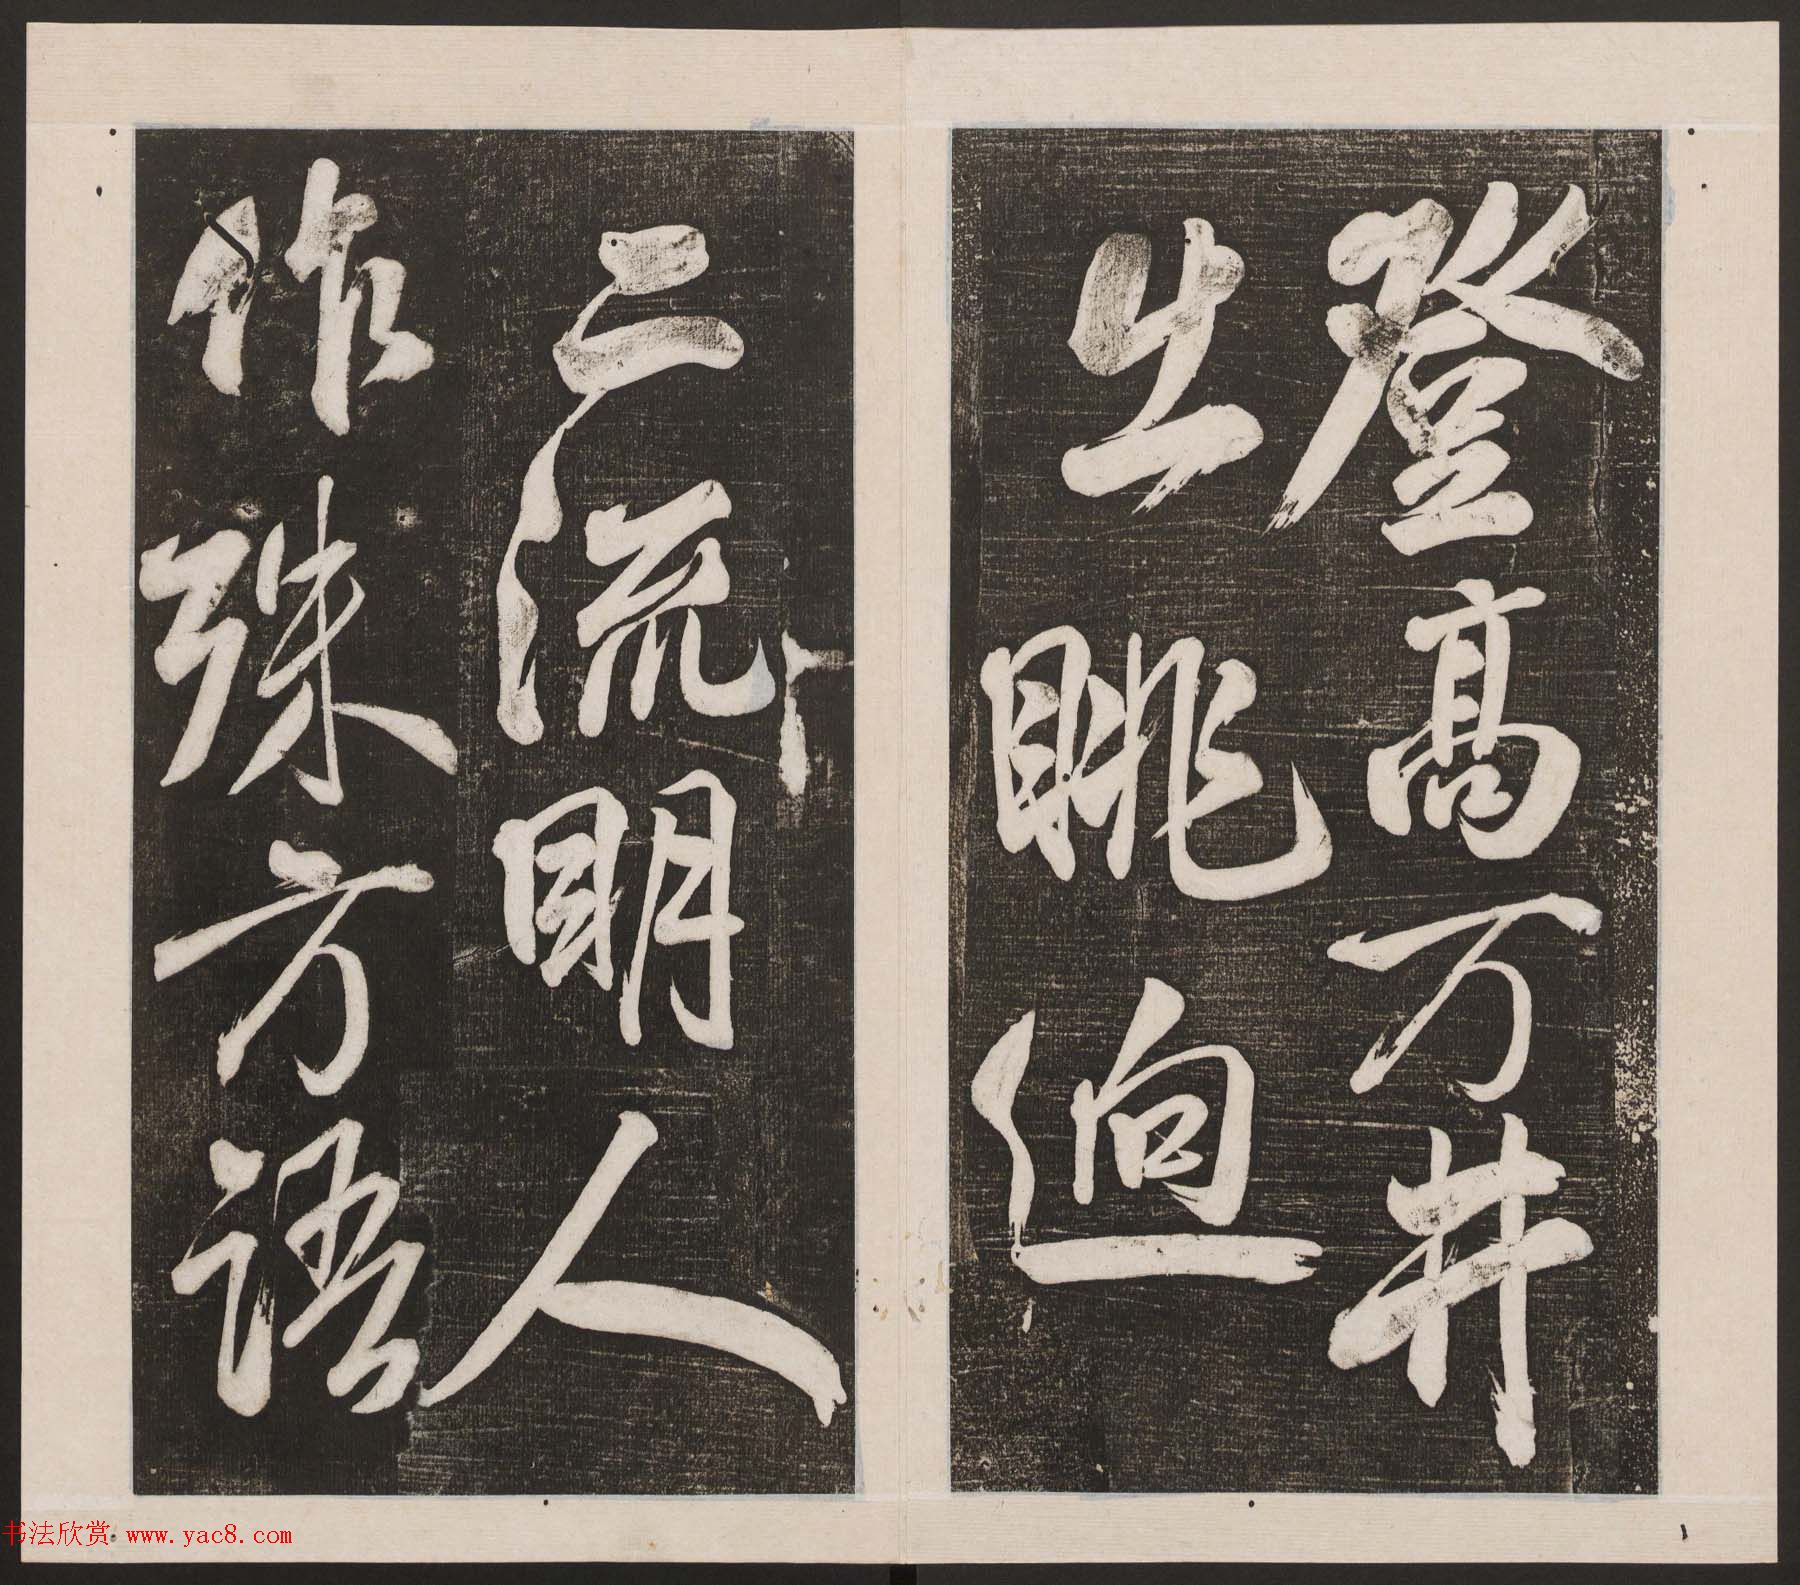 登高万井
出眺逈
二流明人
作殊方語
书法欣赏 www.yac8.com